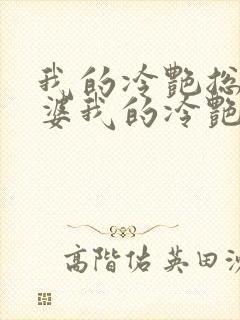 我的冷艷总
婆我的冷艷
高階佑英田沙